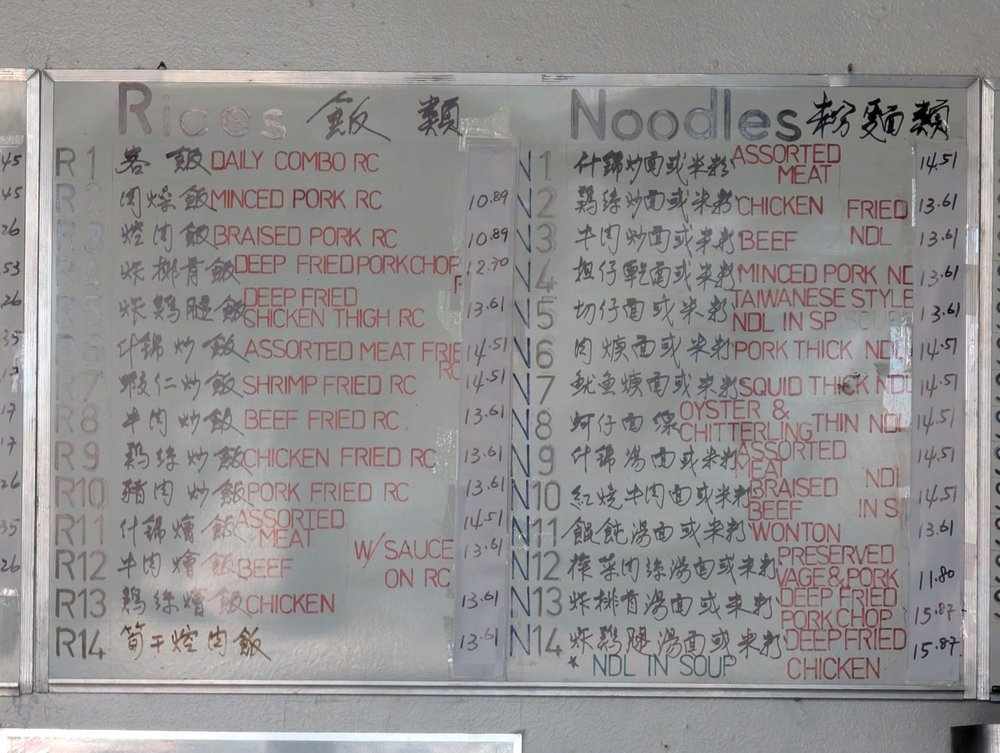 Rices 飯類
R1 客飯 DAILY COMBO RC
R2 肉燥飯 MINCED PORK RC 10.89
R3 焢肉飯 BRAISED PORK RC 10.89
R4 炸排骨飯 DEEP FRIED PORK CHOP 12.70
R5 炸鷄腿飯 DEEP FRIED CHICKEN THIGH RC 13.61
R6 什錦炒飯 ASSORTED MEAT FRIE RC 14.51
R7 蝦仁炒飯 SHRIMP FRIED RC 14.51
R8 牛肉炒飯 BEEF FRIED RC 13.61
R9 鷄絲炒飯 CHICKEN FRIED RC 13.61
R10 豬肉炒飯 PORK FRIED RC 13.61
R11 什錦燴飯 ASSORTED MEAT 14.51
W/SAUCE ON RC
R12 牛肉燴飯 BEEF 13.61
R13 鷄絲燴飯 CHICKEN 13.61
R14 筍干焢肉飯 13.61
Noodles 粉麵類
N1 什錦炒面或米粉 ASSORTED MEAT 14.51
N2 鷄絲炒面或米粉 CHICKEN 13.61
FRIED NDL
N3 牛肉炒面或米粉 BEEF 13.61
N4 担仔乾面或米粉 MINCED PORK ND 13.61
N5 切仔面或米粉 TAIWANESE STYLE NDL IN SP SOUP 13.61
N6 肉焿面或米粉 PORK THICK NDL 14.51
N7 魷鱼焿面或米粉 SQUID THICK NDL 14.51
N8 蚵仔面線 OYSTER & CHITTERLING THIN NDL 14.51
N9 什錦湯面或米粉 ASSORTED MEAT NDL 14.51
N10 紅燒牛肉面或米粉 BRAISED BEEF 14.51
IN S
N11 餛飩湯面或米粉 WONTON 13.61
N12 榨菜肉絲湯面或米粉 PRESERVED VAGE & PORK 11.80
N13 炸排骨湯面或米粉 DEEP FRIED PORK CHOP 15.87
N14 炸鷄腿湯面或米粉 DEEP FRIED CHICKEN 15.87
* NDL IN SOUP